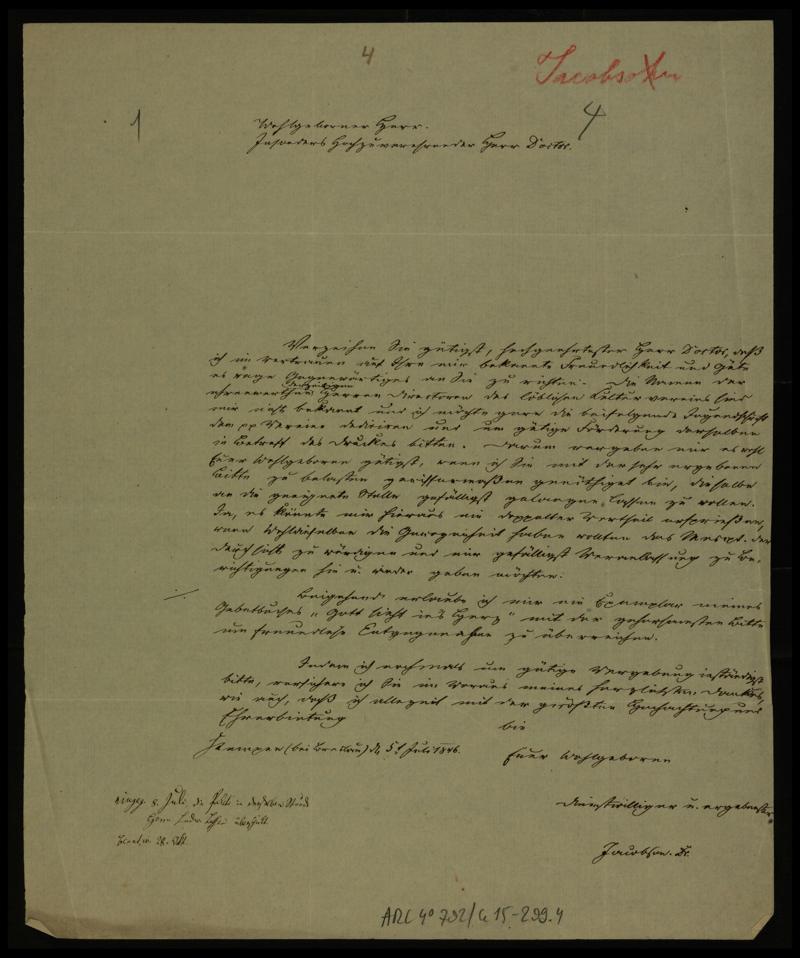 4
Jacobson
1
4
Wohlgeborner Herr.
Insonders Hochzuverehrender Herr Doctor.
Verzeihen Sie gütigst, hochgeehrtester Herr Doctor, daß
ich im Vertrauen auf Ihre mir bekannte Freundlichkeit und Güte
es wage Gegenwärtiges an Sie zu richten. Die Namen der
ehrenwerthen Herren Directoren des löblichen Culturvereins sind
mir nicht bekannt und ich möchte gern die beifolgende Jugendschrift
dem pp Verein dediciren und um gütige Förderung derselben
in Betreff des Druckes bitten. Darum vergeben mir es wohl
Euer Wohlgeboren gütigst, wenn ich Sie mit der sehr ergebenen
Bitte zu belasten gewissermaßen genöthiget bin, dieselbe
an die geeignete Stelle gefälligst gelangen lassen zu wollen.
Ja, es könnte mir hieraus ein doppelter Vortheil ersprießen,
wenn Wohldieselben die Gewogenheit haben wollten das Mscpt. der
Durchsicht zu würdigen und mir gefälligst Veranlassung zu Be-
richtigungen hie u. wieder geben möchten.
Beigehend erlaube ich mir ein Exemplar meines
Gebetbuches "Gott sieht in's Herz" mit der gehorsamsten Bitte
um freundliche Entgegennahme zu überreichen.
Indem ich nochmals um gütige Vergebung inständigst
bitte, versichere ich Sie im Voraus meines herzlichsten Dankes,
wie auch, daß ich allezeit mit der größten Hochachtung und
Ehrerbietung
bin
Kempen (bei Breslau) d. 5t Juli 1846.
Euer Wohlgeboren
dienstwilliger u. ergebenster
Jacobson. Dr.
eingeg. 8. Juli
ARC 4° 792/G 15-299.4